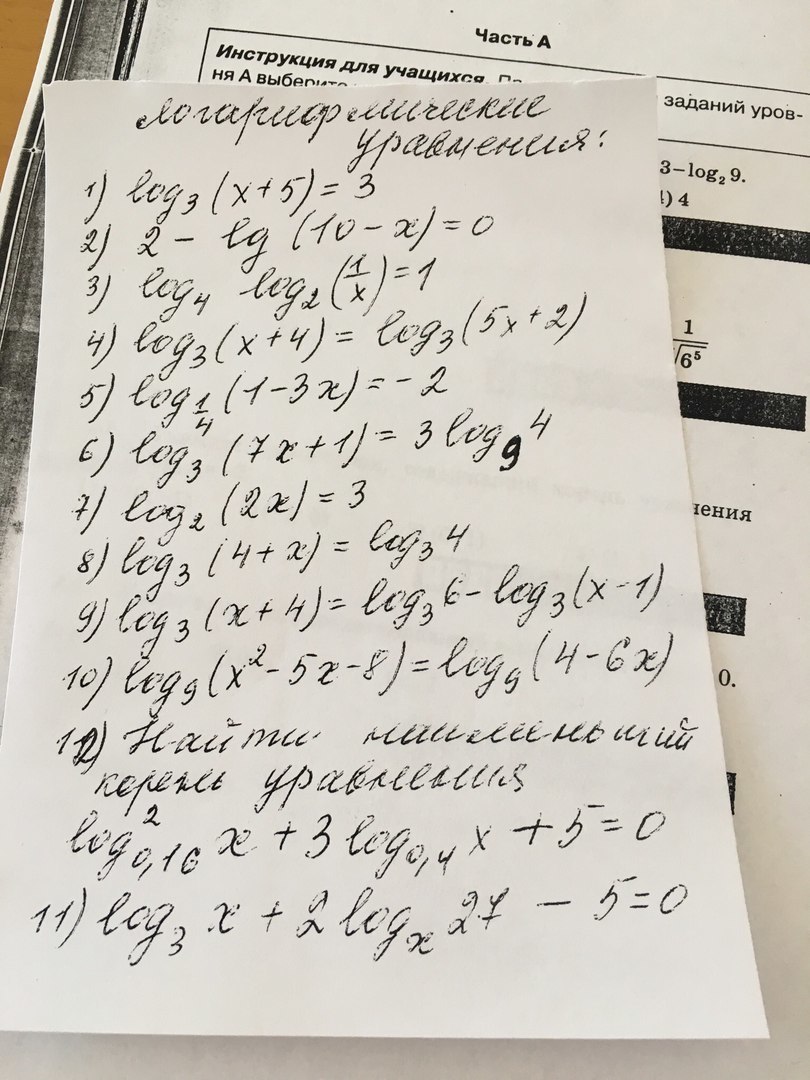 Часть А
Инструкция для учащихся.
ня А выберите
заданий уров-
3−log₂ 9.
) 4
1
√6⁵
0.
логарифмические
уравнения:
1) log₃ (x+5) = 3
2) 2 − lg (10 − x) = 0
3) log₄ log₂ (1/x) = 1
4) log₃ (x+4) = log₃ (5x+2)
5) log_1/4 (1−3x) = −2
6) log₃ (7x+1) = 3 log₉ 4
7) log₂ (2x) = 3
8) log₃ (4+x) = log₃ 4
9) log₃ (x+4) = log₃ 6 − log₃ (x−1)
10) log₉ (x² − 5x − 8) = log₉ (4 − 6x)
12) Найти наименьший
корень уравнения
log²_0,16 x + 3 log_0,4 x + 5 = 0
11) log₃ x + 2 logₓ 27 − 5 = 0